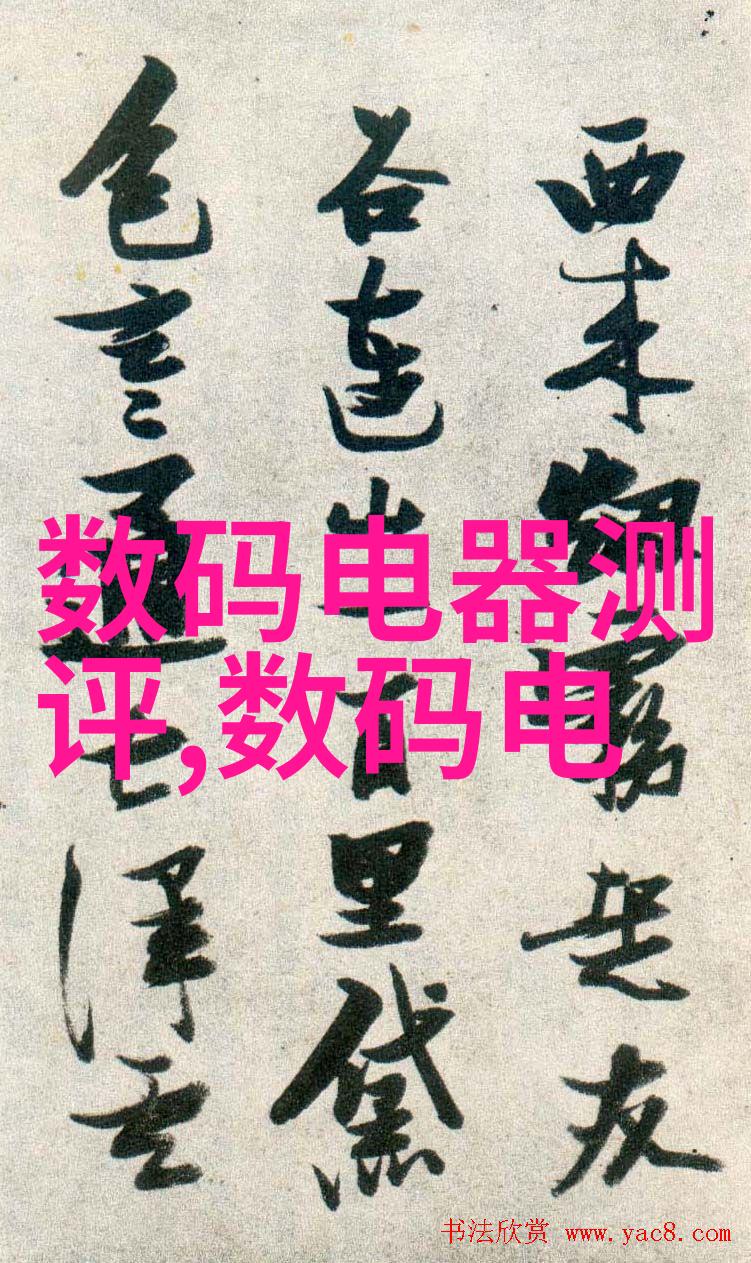 西来友
谷連山百里黛
色言通七澤云
数码电器测
评,数码电
书法欣赏 www.yac8.com